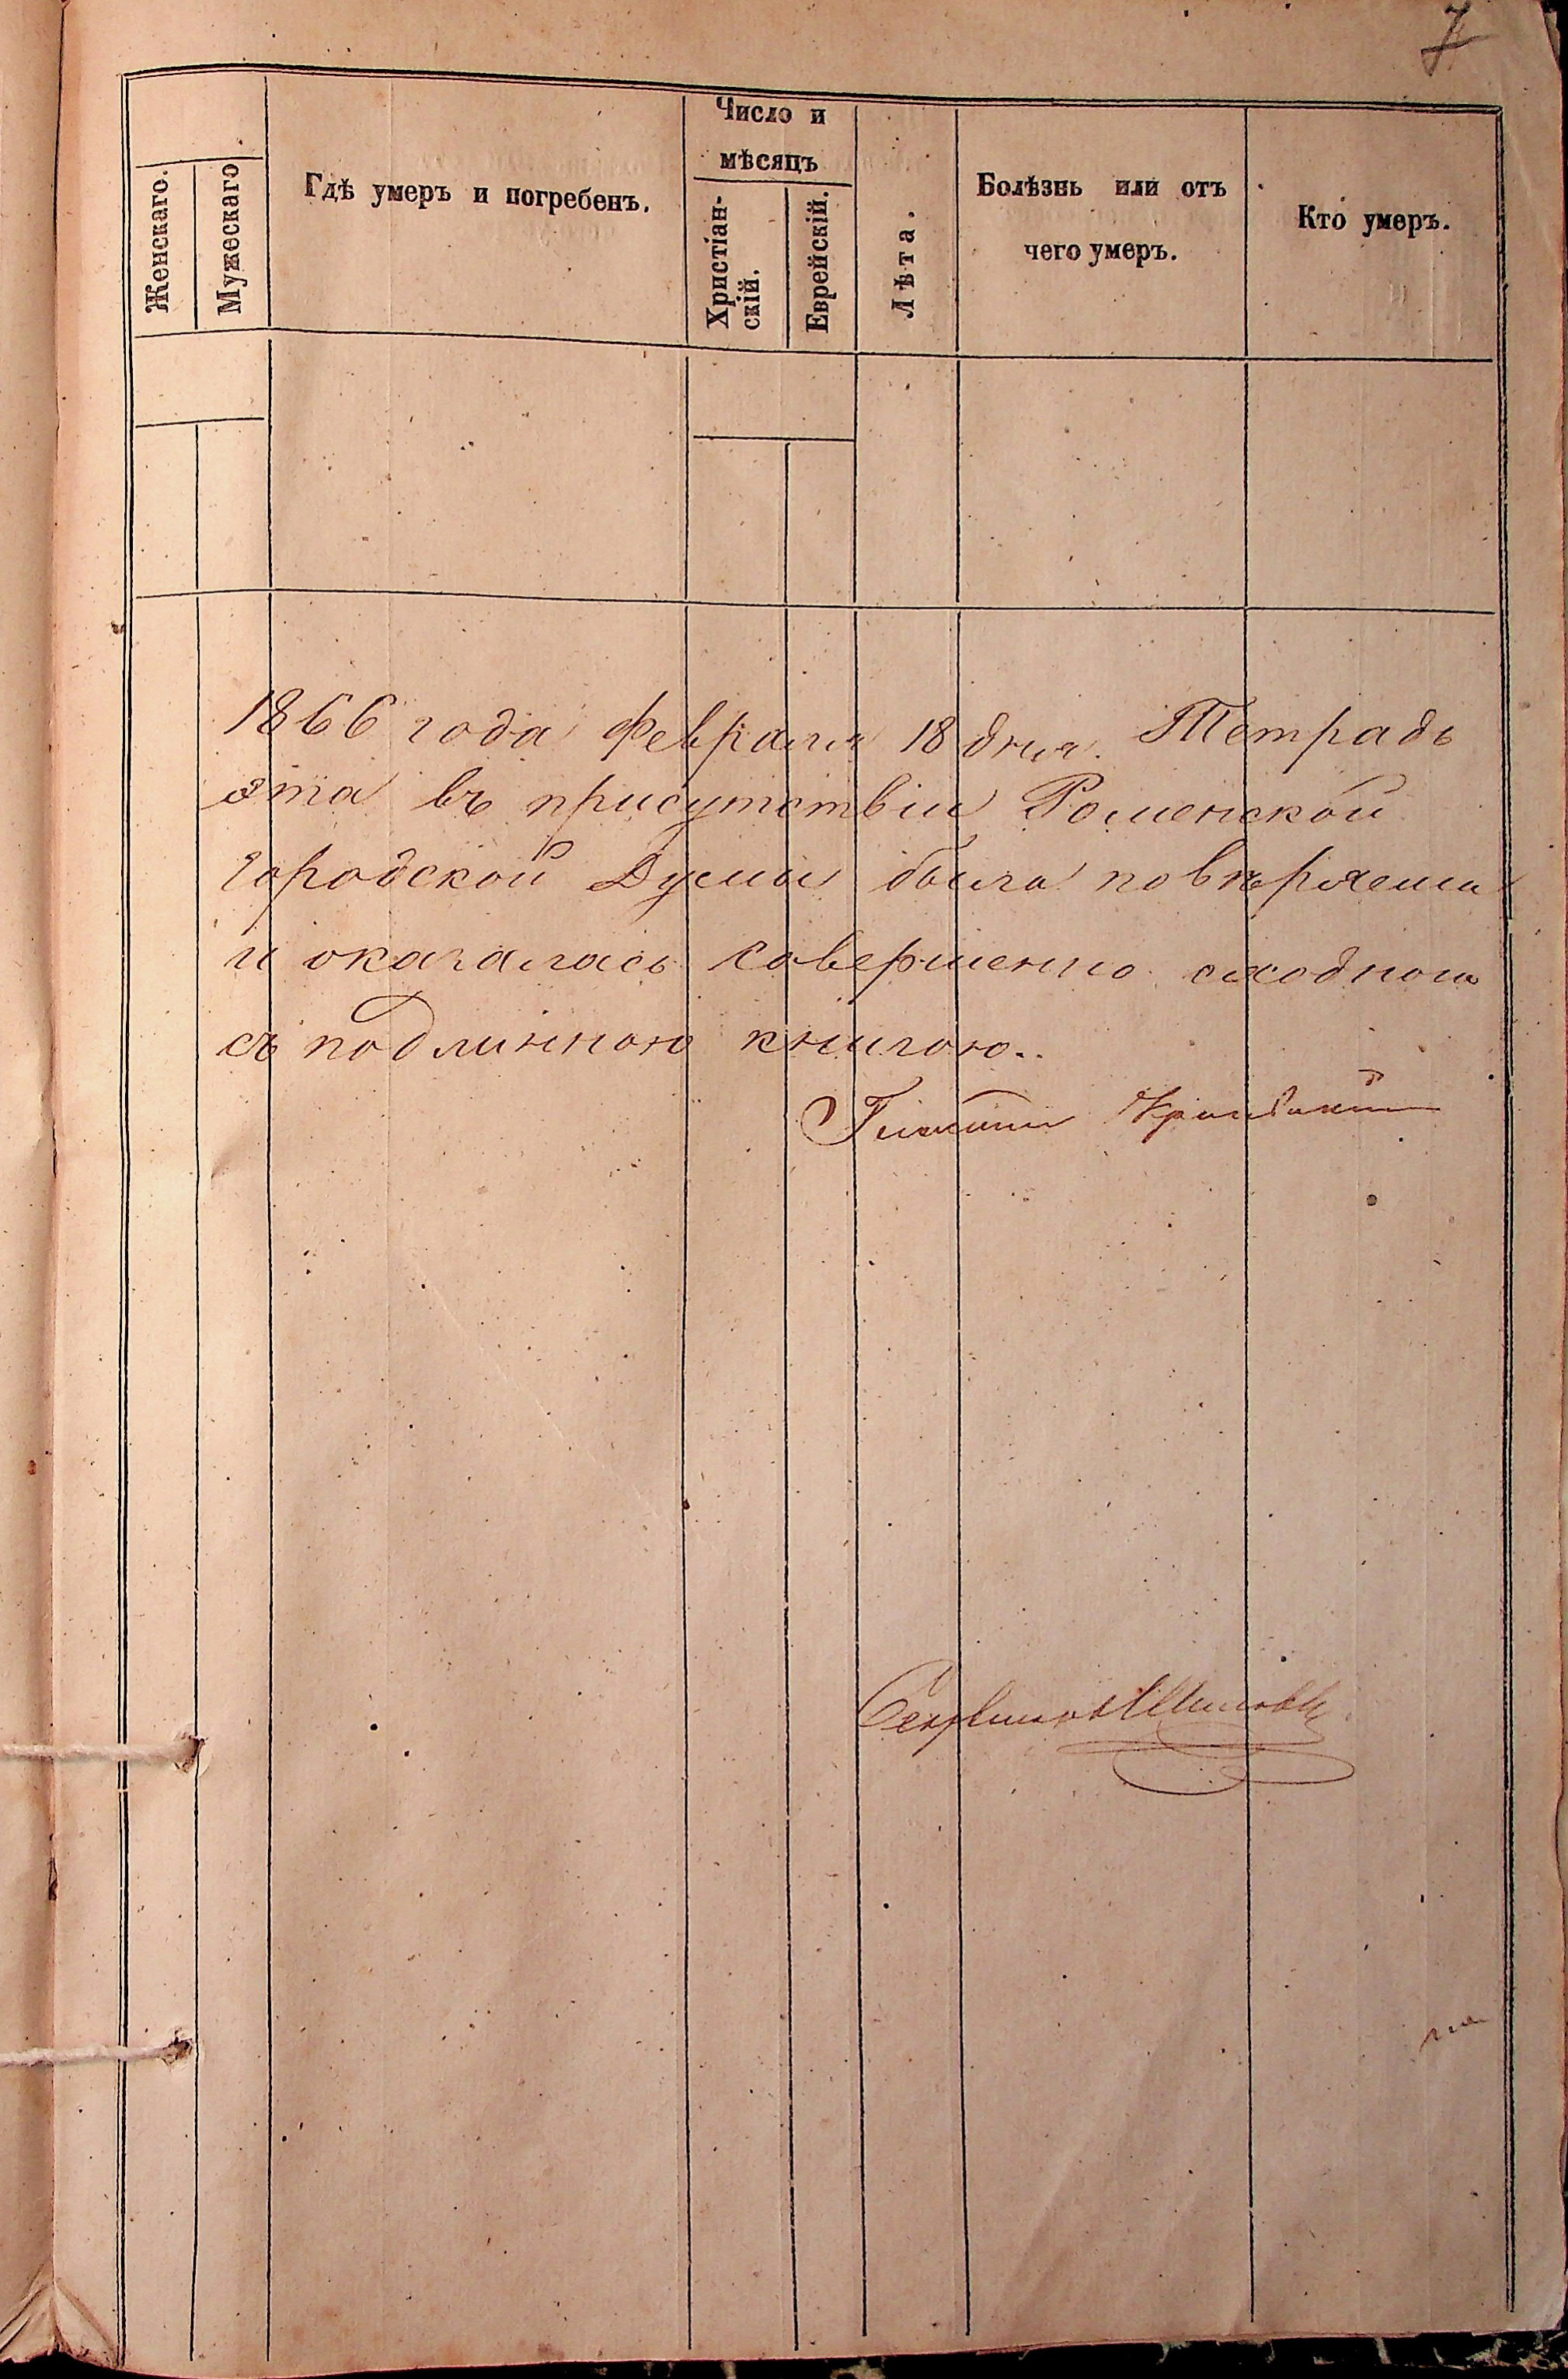 7
Число и
мѣсяцъ
Женскаго.
Мужескаго
Гдѣ умеръ и погребенъ.
Христіан-
скій.
Еврейскій.
Лѣта.
Болѣзнь или отъ
чего умеръ.
Кто умеръ.
1866 года февраля 18 дня. Тетрадь
эта въ присутствіи Роменской
Городской Думы была повѣряема
и оказалась совершенно сходною
съ подлинною книгою..